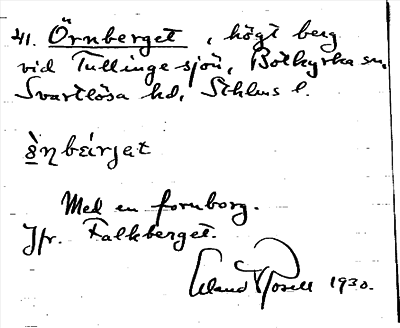 41. Örnberget, högt berg
vid Tullingesjön, Botkyrka sn,
Svartlösa hd, Sthlms l.
Med en fornborg.
Jfr. Falkberget.
Erland Rosell 1930.